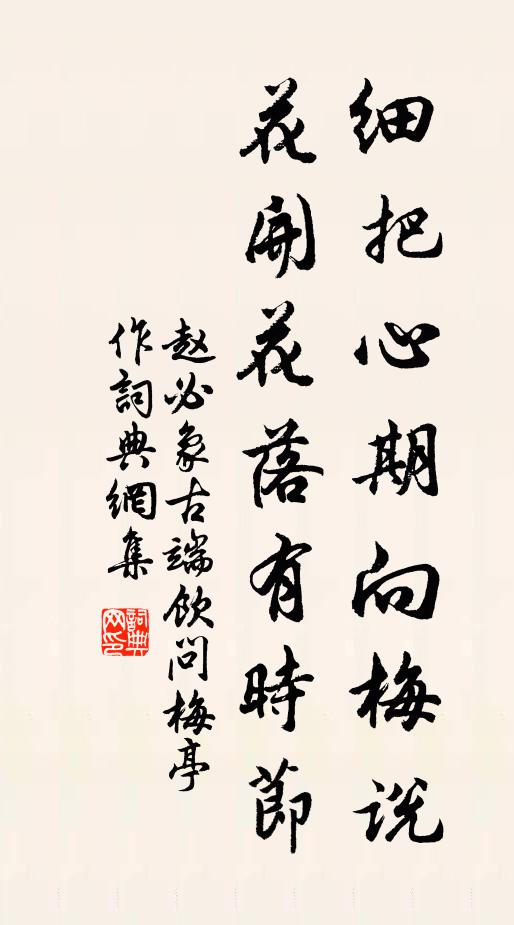 细把心期向梅说
花開花落有時節
赵必象古端饮问梅亭
作詞典網集
詞典网印